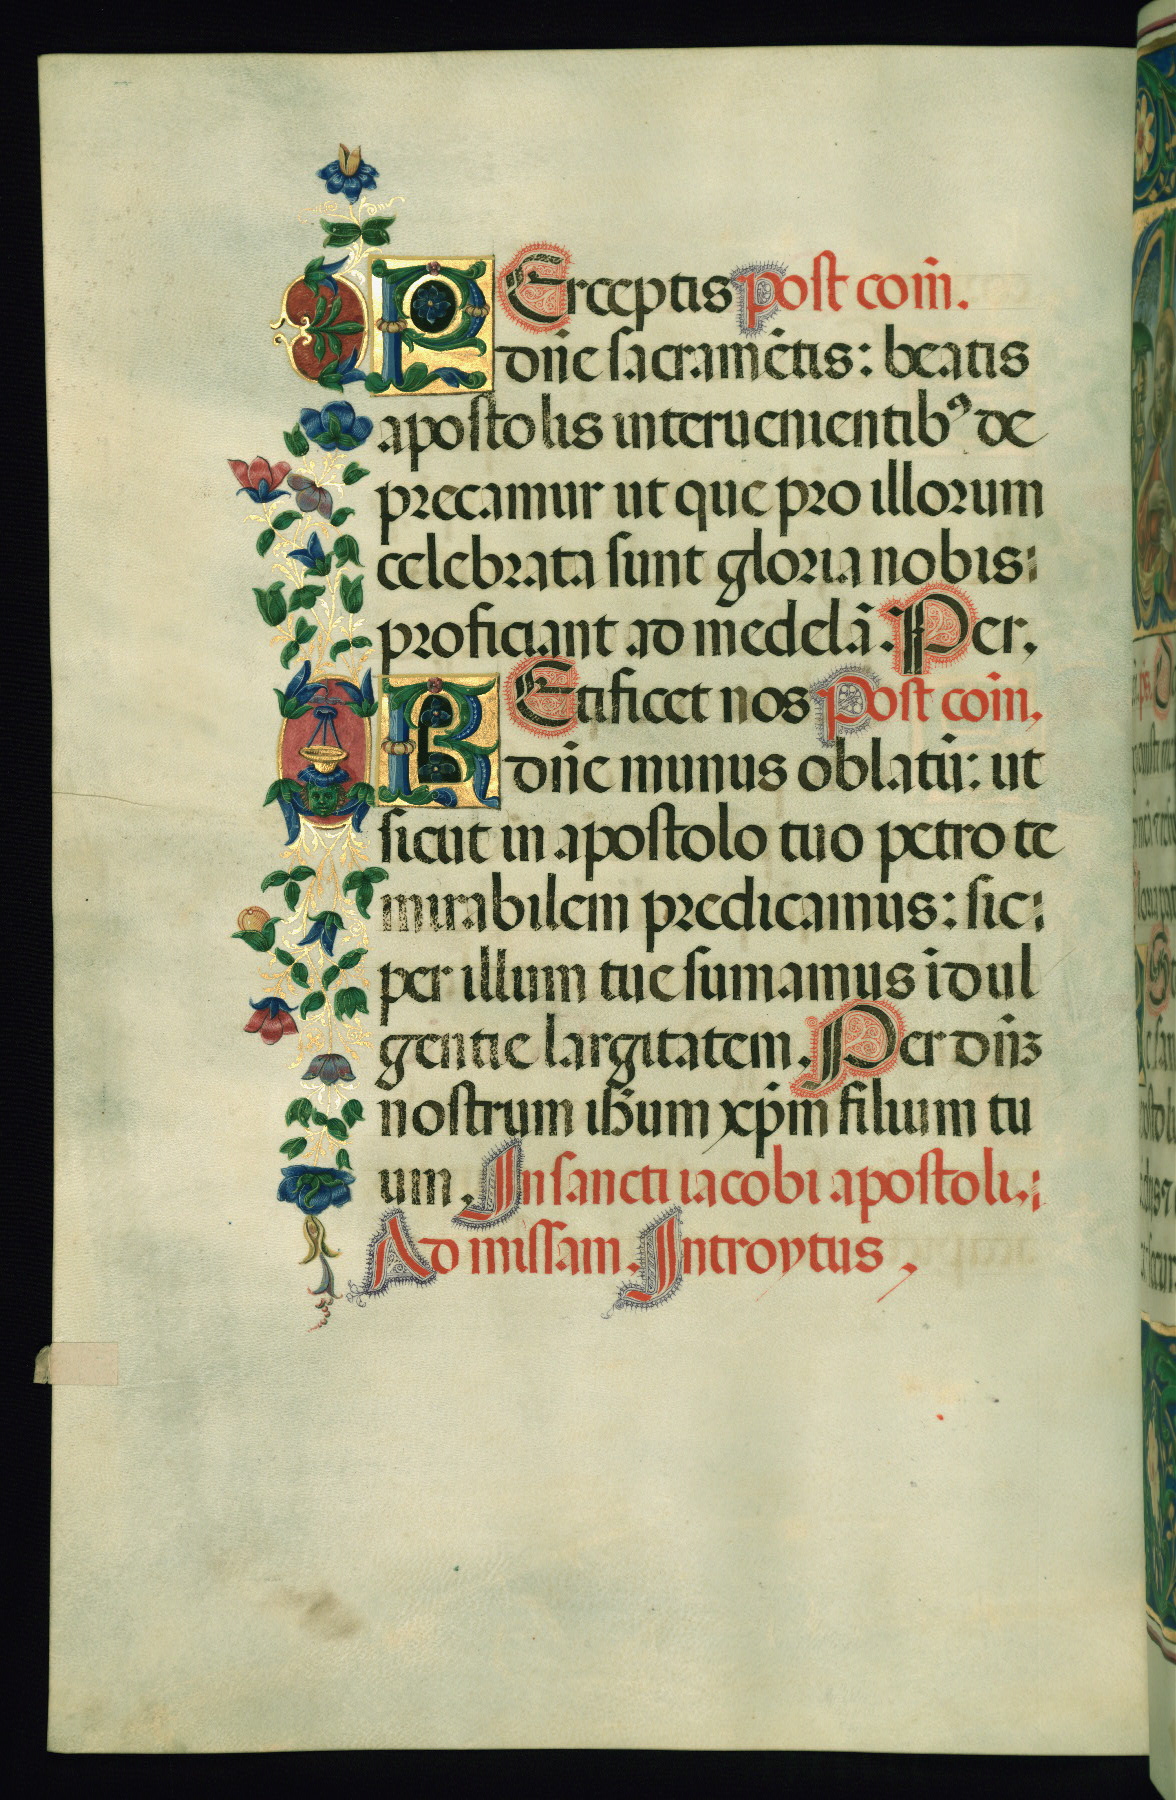 PErceptis post com̄.
dn̄e sacramētis: beatis
apostolis interuenientibꝰ de
precamur ut que pro illorum
celebrata sunt gloria nobis:
proficiant ad medelā. Per.
LEtificet nos post com̄.
dn̄e munus oblatū: ut
sicut in apostolo tuo petro te
mirabilem predicamus: sic:
per illum tue sumamus īdul
gentie largitatem. Per dn̄ꝫ
nostrum ih̄um xp̄m filium tu
um. In sancti iacobi apostoli.:
Ad missam. Introytus.